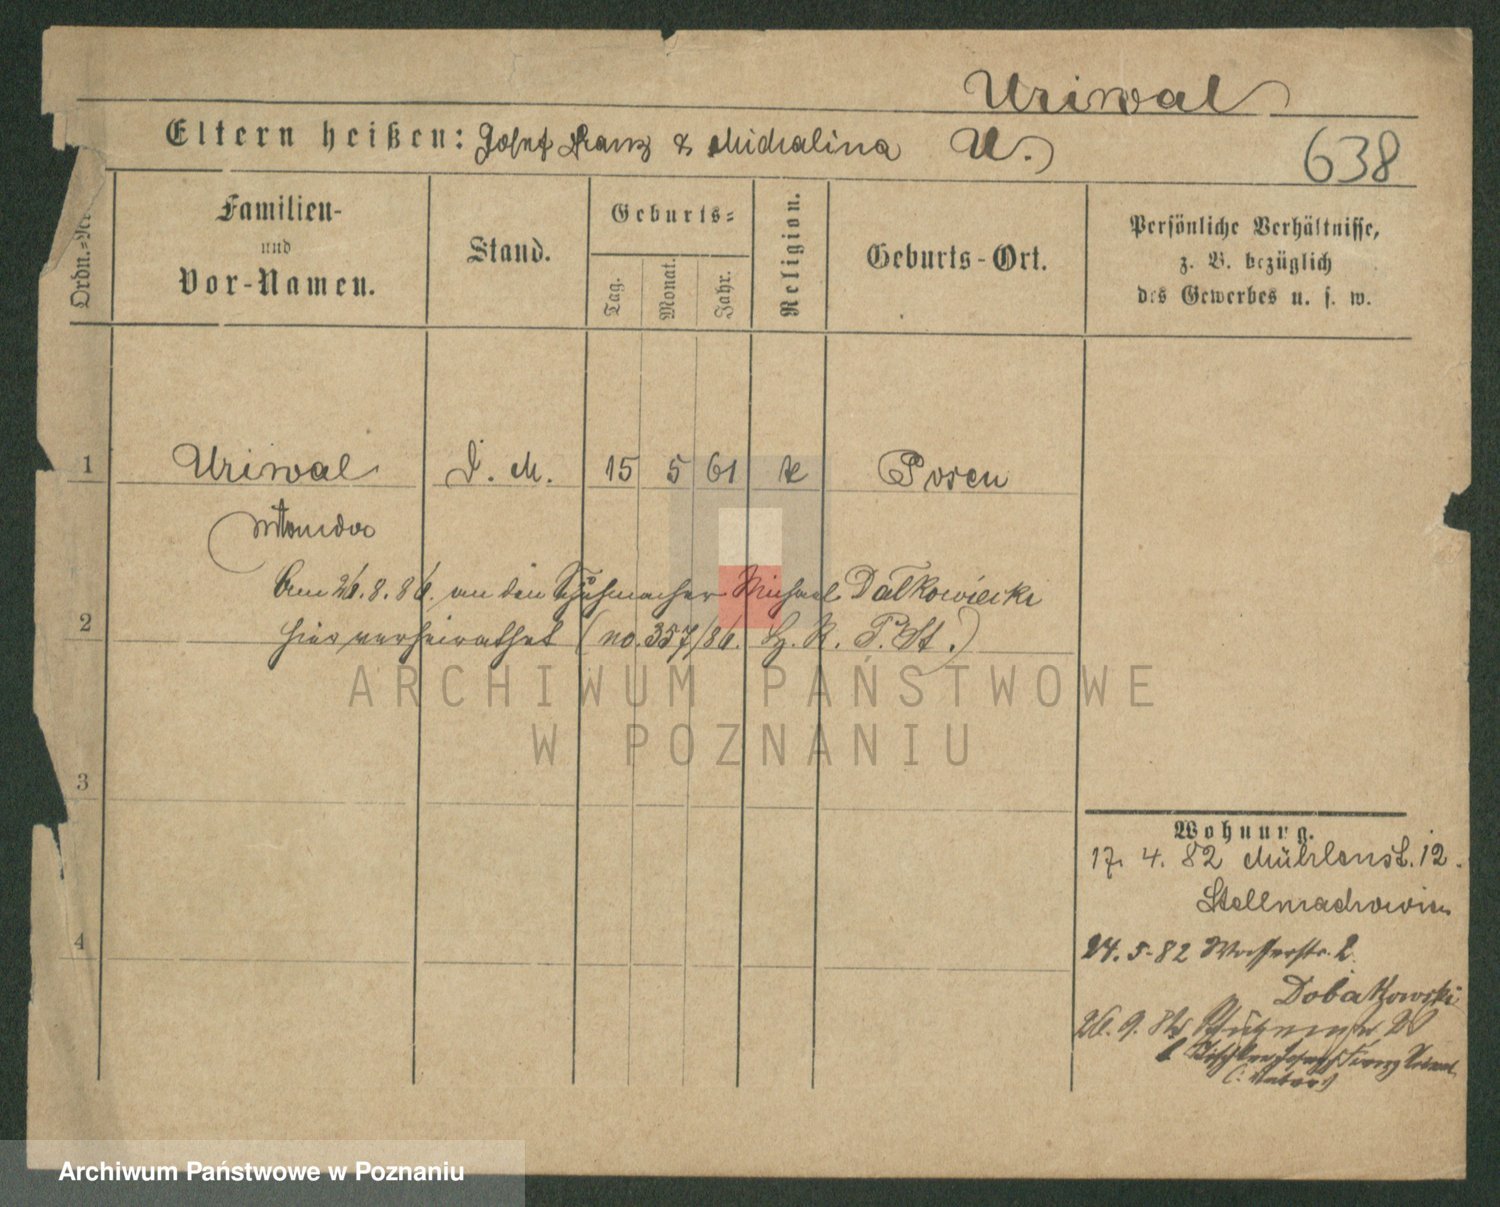 Uriwal
Eltern heißen: Josef Franz & Michalina U.
638
Ordn.-Nr.
Familien-
und
Vor-Namen.
Stand.
Geburts-
Tag.
Monat.
Jahr.
Religion.
Geburts-Ort.
Persönliche Verhältnisse,
z. B. bezüglich
des Gewerbes u. s. w.
1 Uriwal D. M. 15 5 61 k Posen
Am 26.8.86. an den Schuhmacher Michael Datkowiecki
2 hier verheirathet (no. 357/86. Hg. K. P. St.)
ARCHIWUM PAŃSTWOWE
W POZNANIU
3
4
Wohnung.
17. 4. 82 Mühlenst. 12.
Stellmachowicz
24. 5. 82 Wasserstr. 2.
Dobatkowski
26. 9.
Franz Uriwal
(: Vater :)
Archiwum Państwowe w Poznaniu